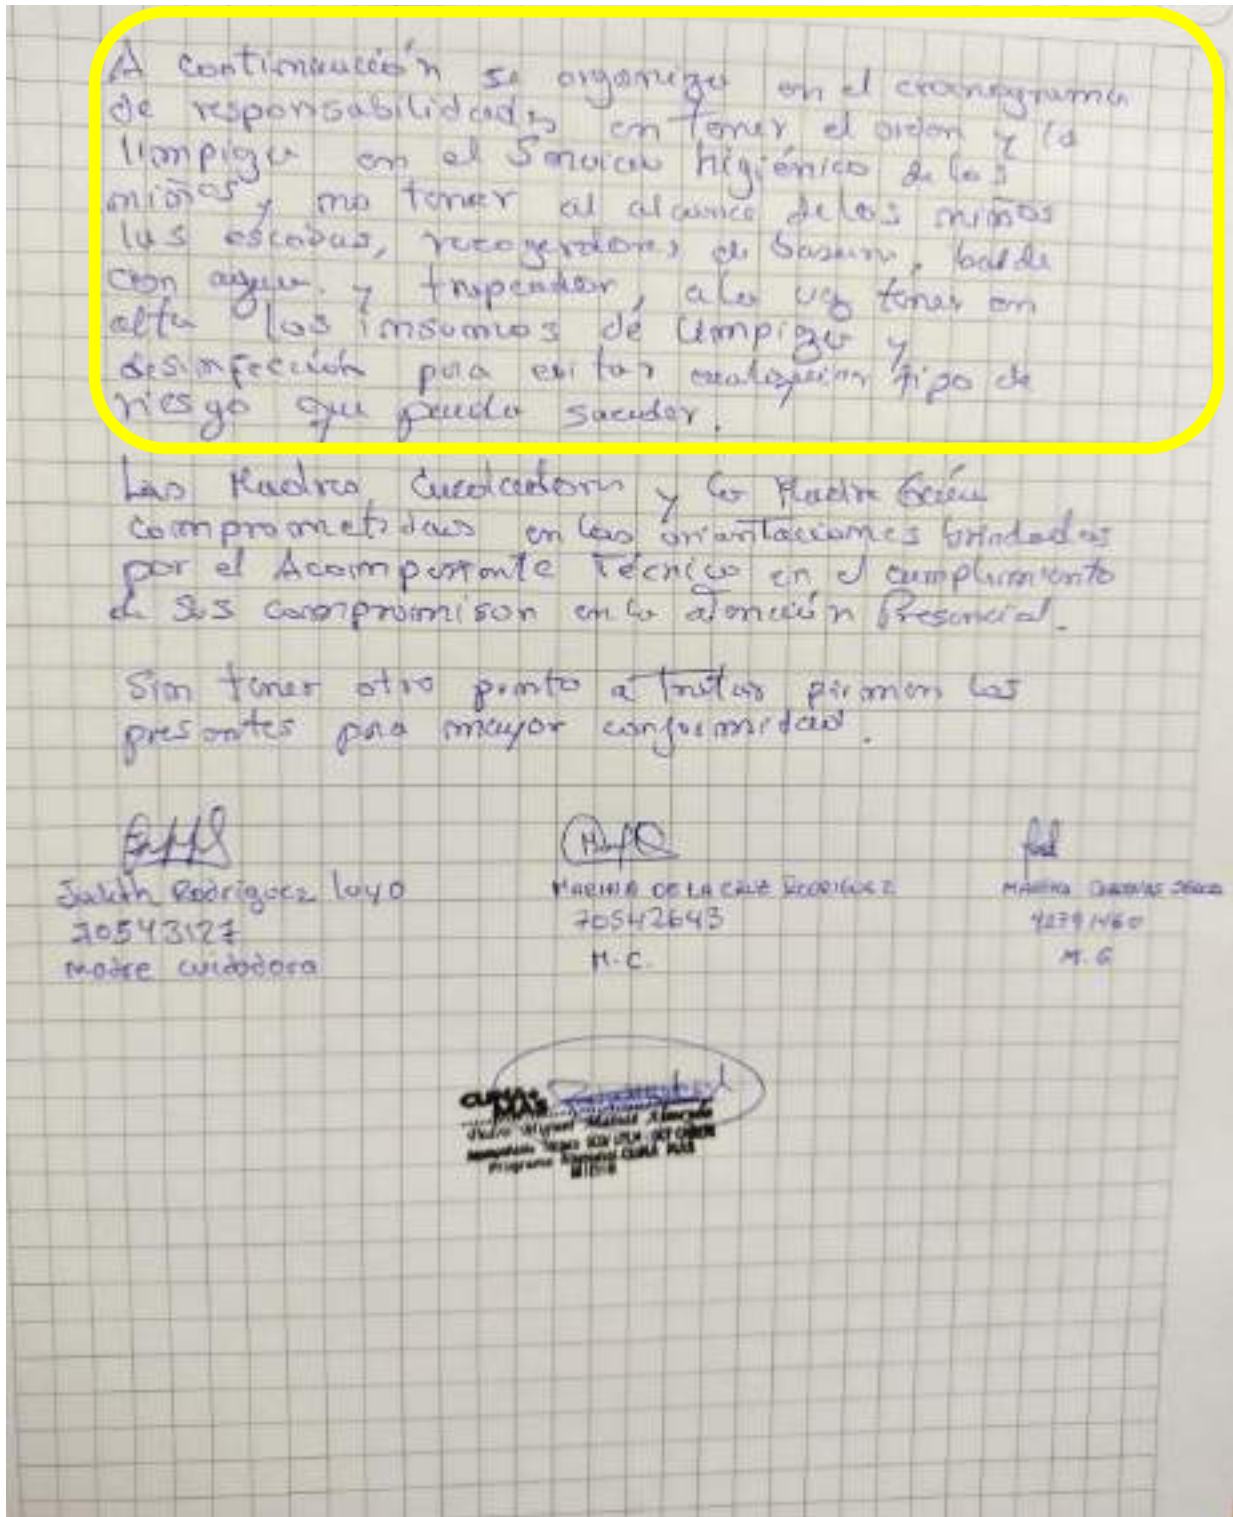 A continuación se organiza en el cronograma
de responsabilidades en tener el orden y la
limpieza en el Servicio higiénico de los
niños y no tener al alcance de los niños
las escobas, recogedores de basura, balde
con agua y trapeador, a la vez tener en
alto los insumos de limpieza y
desinfección para evitar cualquier tipo de
riesgo que pueda suceder.
Las Madres Cuidadoras y la Madre Guía
comprometidas en las orientaciones brindadas
por el Acompañante Técnico en el cumplimiento
de sus compromisos en la atención Presencial.
Sin tener otro punto a tratar firman los
presentes para mayor conformidad.
Judith Rodriguez Luyo
70543127
Madre cuidadora
MARINA DE LA CRUZ RODRIGUEZ
70542643
M.C.
MARINA CARDENAS
M.G
CUNA
MAS
Miguel
Programa Nacional CUNA MAS
MIDIS